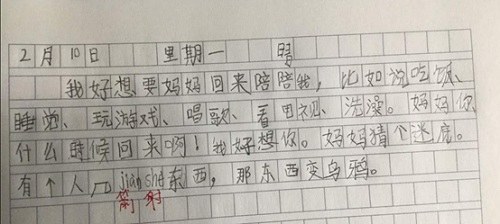 2月10日 星期一 晴
我好想要妈妈回来陪陪我，比如说吃饭、
睡觉、玩游戏、唱歌、看电视、洗澡。妈妈你
什么时候回来啊！我好想你。妈妈猜个迷底。
有个人几jiànshe东西，那东西变乌鸦。
箭射